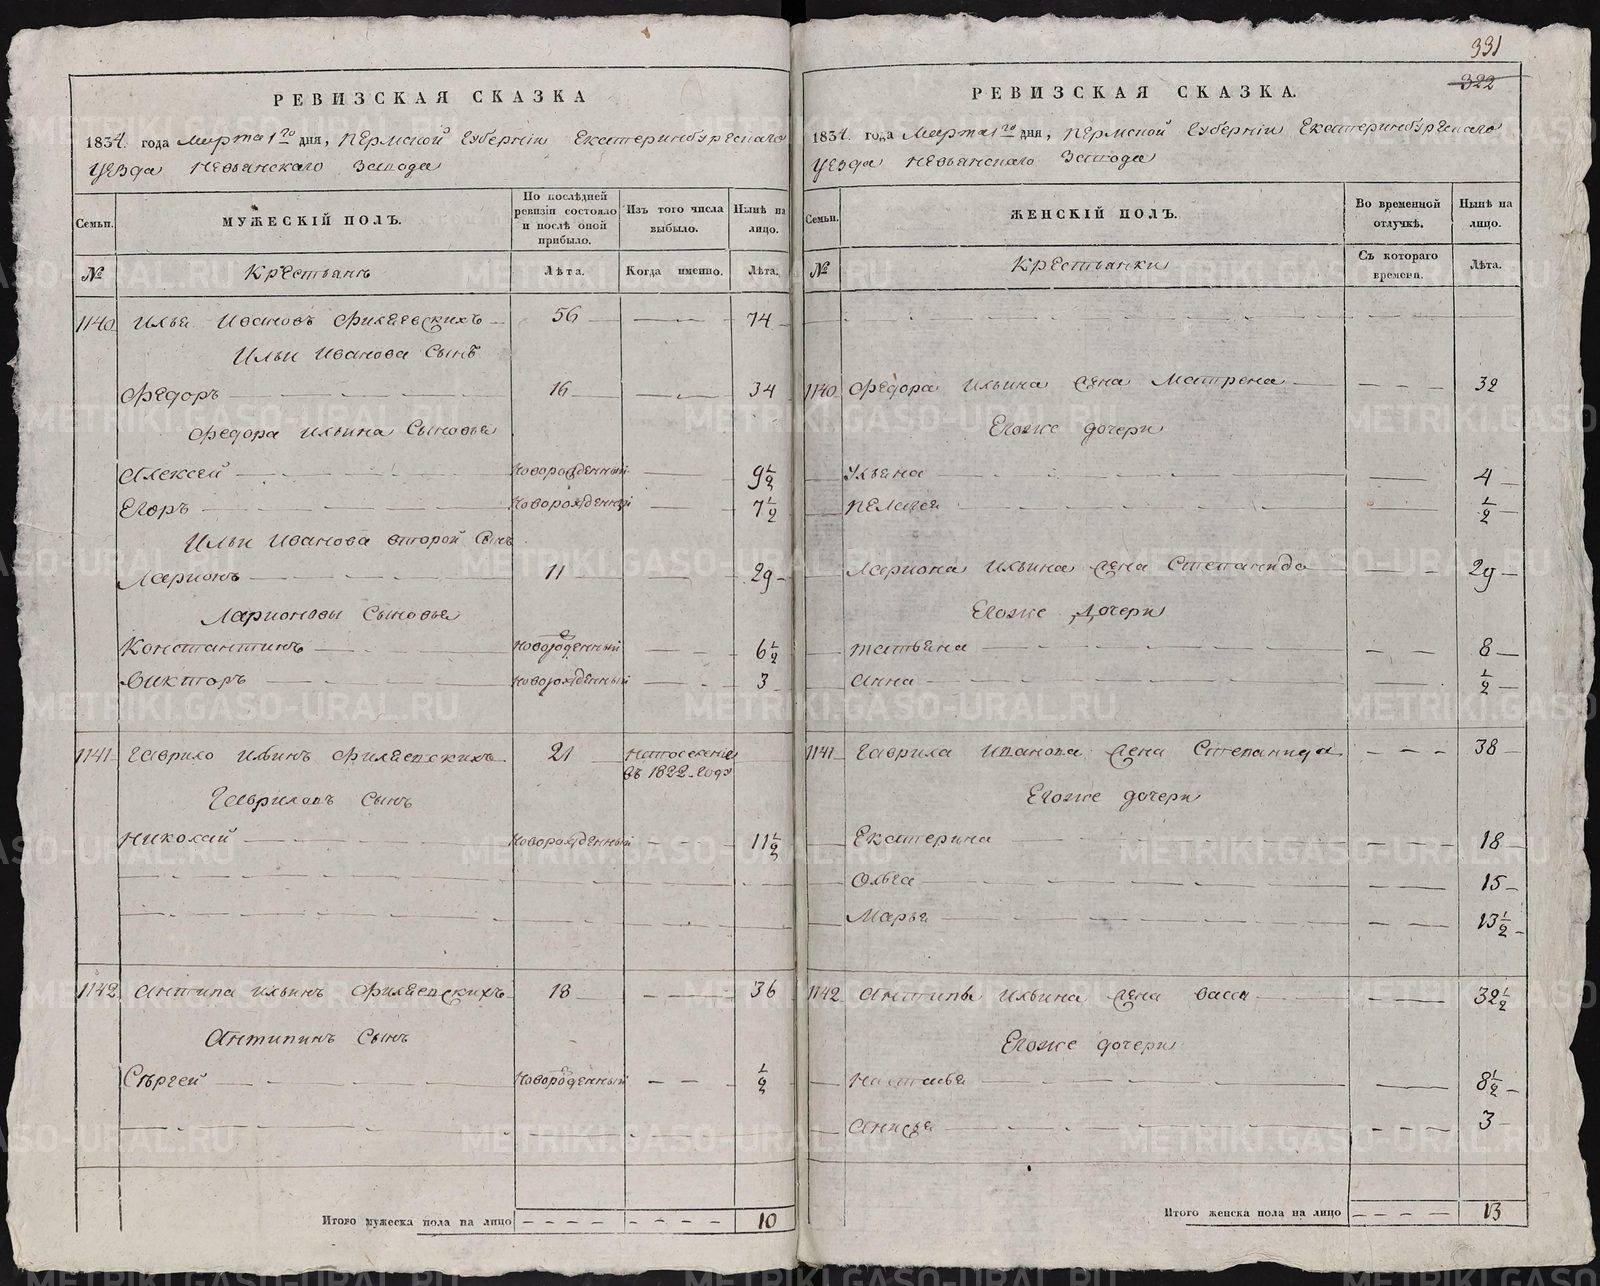 331
322
РЕВИЗСКАЯ СКАЗКА
1834. года Марта 1го дня, Пермской Губерніи Екатеринбургскаго
уезда Невьянскаго Завода
Семьи.
МУЖЕСКІЙ ПОЛЪ.
По послѣдней ревизіи состояло и послѣ оной прибыло.
Изъ того числа выбыло.
Нынѣ на лицо.
№ Крестьянъ Лѣта. Когда именно. Лѣта.
1140 Илья Ивановъ Филяевскихъ 56 74
Ильи Иванова Сынъ
Федоръ 16 34
Федора Ильина Сыновья
Алексей Новорожденный 9 1/2
Егоръ Новорожденный 7 1/2
Ильи Иванова второй Сынъ
Ларионъ 11 29
Ларионовы Сыновья
Константинъ Новорожденный 6 1/2
Викторъ Новорожденный 3
1141 Гаврило Ильинъ Филяевскихъ 21 На поселеніе
въ 1822 году
Гавриловъ Сынъ
Николай Новорожденный 11 1/2
1142 Антипа Ильинъ Филяевскихъ 18 36
Антипинъ Сынъ
Сергей Новорожденный 1/2
Итого мужеска пола на лицо 10
РЕВИЗСКАЯ СКАЗКА.
1834. года Марта 1го дня, Пермской Губерніи Екатеринбургскаго
уезда Невьянскаго Завода
Семьи.
ЖЕНСКІЙ ПОЛЪ.
Во временной отлучкѣ.
Нынѣ на лицо.
№ Крестьянки Съ котораго времени. Лѣта.
1140 Федора Ильина жена Матрена 32
Егоже дочери
Ульяна 4
Пелагея 1/2
Лариона Ильина жена Степанида 29
Егоже Дочери
Татьяна 8
Анна 1/2
1141 Гаврила Иванова жена Степанида 38
Егоже дочери
Екатерина 18
Ольга 15
Марья 13 1/2
1142 Антипы Ильина жена Васса 32 1/2
Егоже дочери
Настасья 8 1/2
Анисья 3
Итого женска пола на лицо 13
METRIKI.GASO-URAL.RU